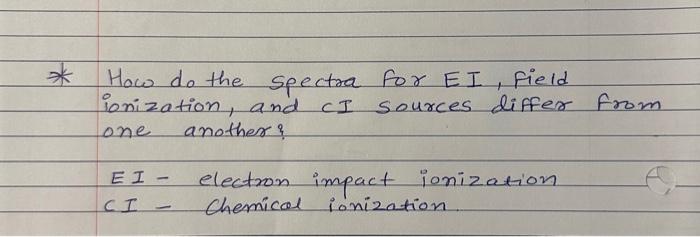 * How do the spectra for EI, field
ionization, and CI sources differ from
one another?
EI - electron impact ionization
CI - Chemical ionization